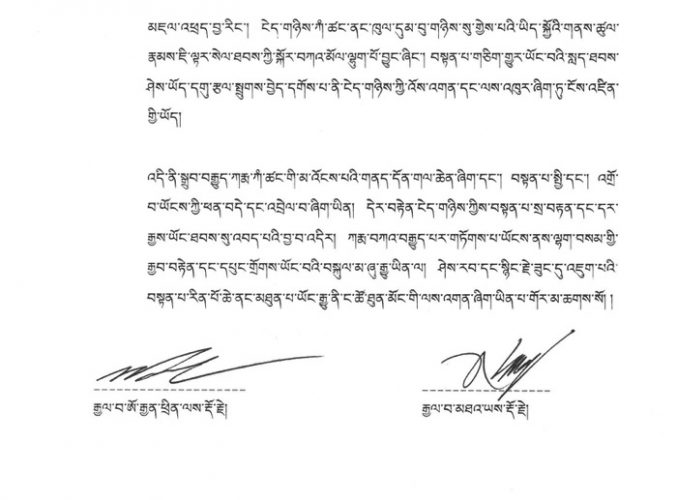 མཇལ་འཕྲད་བྱ་རིང་། ངེད་གཉིས་ཀཾ་ཚང་ནང་ཁུལ་དུམ་བུ་གཉིས་སུ་གྱེས་པའི་ཡིད་སྐྱོའི་གནས་ཚུལ་
རྣམས་ཇི་ལྟར་སེལ་ཐབས་ཀྱི་སྐོར་བཀའ་མོལ་ལྷུག་པོ་བྱུང་ཞིང་། བསྟན་པ་གཅིག་གྱུར་ཡོང་བའི་སླད་ཐབས་
ཤེས་ཡོད་དགུ་རྩལ་སྤྲུགས་བྱེད་དགོས་པ་ནི་ངེད་གཉིས་ཀྱི་འོས་འགན་དང་ལས་འཁུར་ཞིག་ཏུ་ངོས་འཛིན་
གྱི་ཡོད།
འདི་ནི་སྒྲུབ་བརྒྱུད་ཀརྨ་ཀཾ་ཚང་གི་མ་འོངས་པའི་གནད་དོན་གལ་ཆེན་ཞིག་དང་། བསྟན་པ་སྤྱི་དང་། འགྲོ་
བ་ཡོངས་ཀྱི་ཕན་བདེ་དང་འབྲེལ་བ་ཞིག་ཡིན། དེར་བརྟེན་ངེད་གཉིས་ཀྱིས་བསྟན་པ་སྲ་བརྟན་དང་དར་
རྒྱས་ཡོང་ཐབས་སུ་འབད་པའི་བྱ་བ་འདིར། ཀརྨ་བཀའ་བརྒྱུད་པར་གཏོགས་པ་ཡོངས་ནས་ལྷག་བསམ་གྱི་
རྒྱབ་བརྟེན་དང་དཔུང་གྲོགས་ཡོང་བའི་བསྐུལ་མ་ཞུ་རྒྱུ་ཡིན་ལ། ཤེས་རབ་དང་སྙིང་རྗེ་ཟུང་དུ་འཇུག་པའི་
བསྟན་པ་རིན་པོ་ཆེ་ནང་མཐུན་པ་ཡོང་རྒྱུ་ནི་ང་ཚོ་ཐུན་མོང་གི་ལས་འགན་ཞིག་ཡིན་པ་གོར་མ་ཆགས་སོ། །
རྒྱལ་བ་ཨོ་རྒྱན་ཕྲིན་ལས་རྡོ་རྗེ།
རྒྱལ་བ་མཐའ་ཡས་རྡོ་རྗེ།